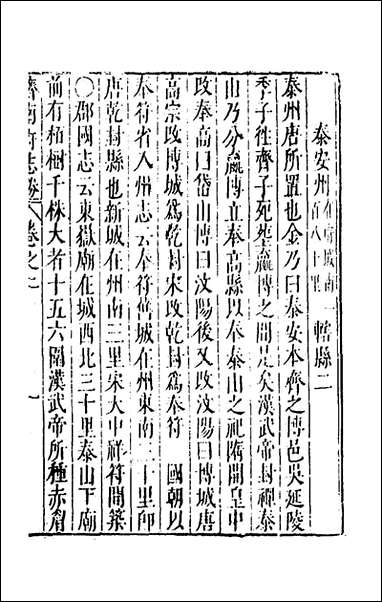 泰安州在府城南一百八十里 轄縣二
泰州唐所置也金乃曰泰安本齊之博邑吳延陵
季子徃齊子死塟嬴博之間是矣漢武帝封禪泰
山乃分嬴博立奉高縣以奉泰山之祀隋開皇中
改奉高曰岱山博曰汶陽後又改汶陽曰博城唐
高宗改博城爲乾封宋改乾封爲奉符 國朝以
奉符省入州志云奉符舊城在州東南三十里即
唐乾封縣也新城在州南三里宋大中祥符間築
○郡國志云東嶽廟在城西北三十里泰山下廟
前有栢樹千株大者十五六圍漢武帝所種赤眉
濟南府志 卷之二